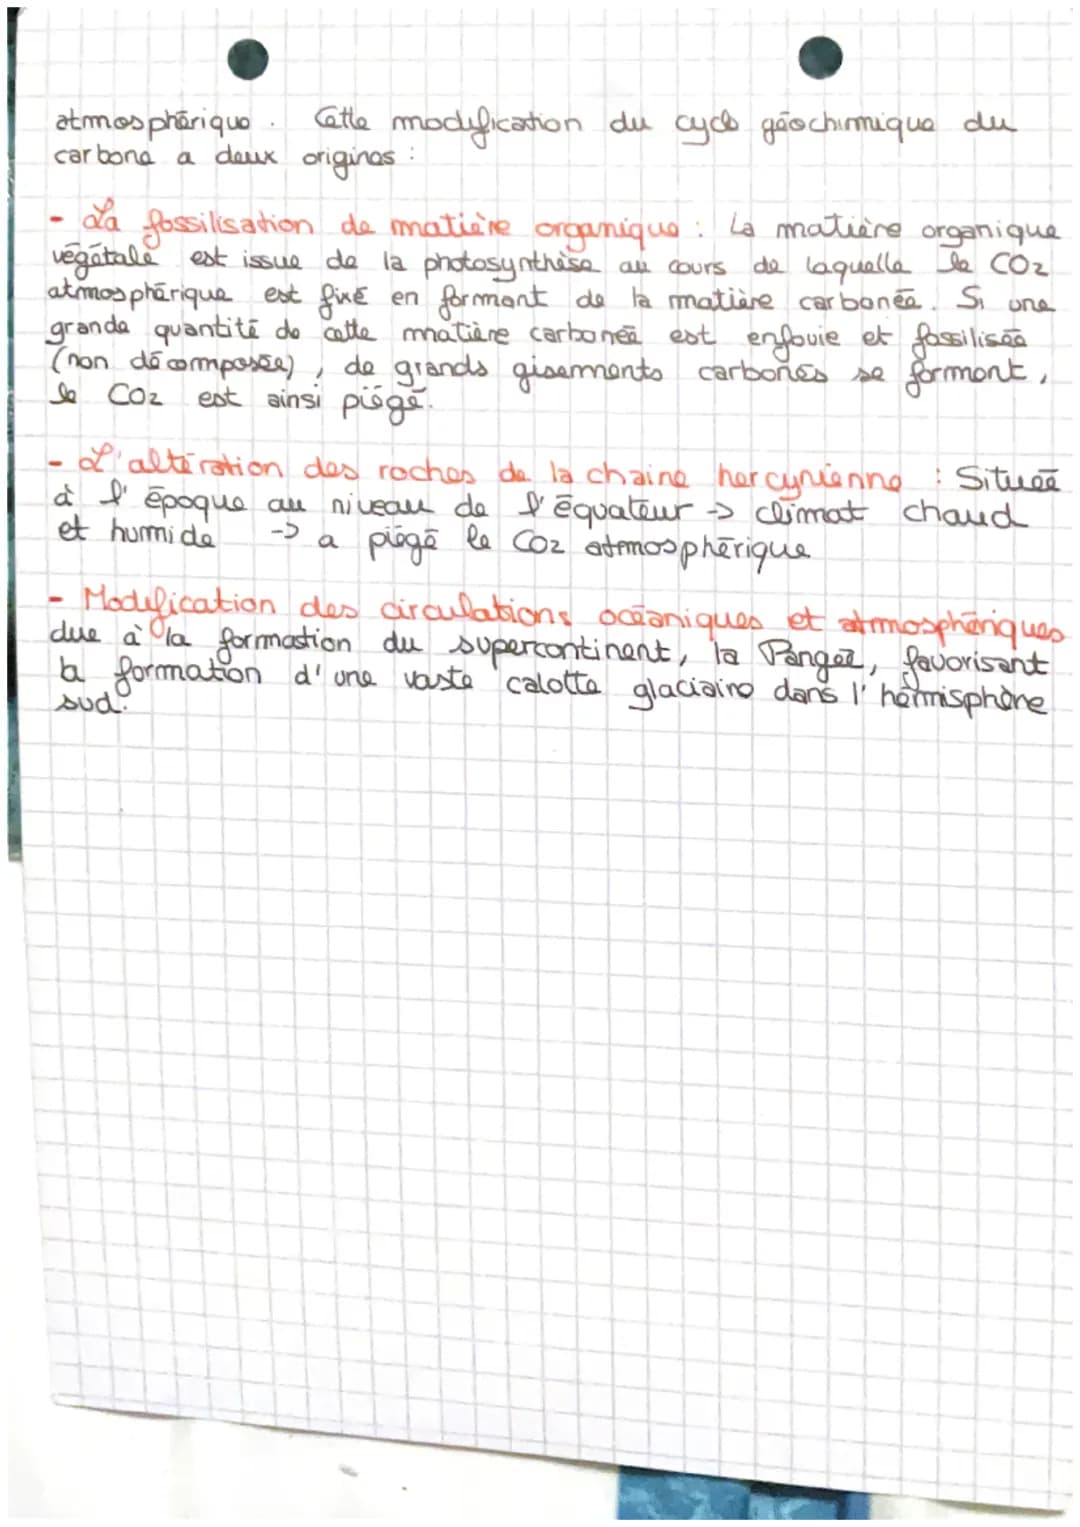 atmosphérique. Cette modification du cycle géochimique du
carbone a deux origines :
- La fossilisation de matière organique : La matière organique
végétale est issue de la photosynthèse au cours de laquelle le CO2
atmosphérique est fixé en formant de la matière carbonée. Si une
grande quantité de cette matière carbonée est enfouie et fossilisée
(non décomposée), de grands gisements carbonés se forment,
le CO2 est ainsi piégé.
- L'altération des roches de la chaine hercynienne : Située
à l'époque au niveau de l'équateur -> climat chaud
et humide -> a piégé le CO2 atmosphérique
- Modification des circulations océaniques et atmosphériques
due à la formation du supercontinent, la Pangée, favorisant
la formation d'une vaste calotte glaciaire dans l'hémisphère
sud.